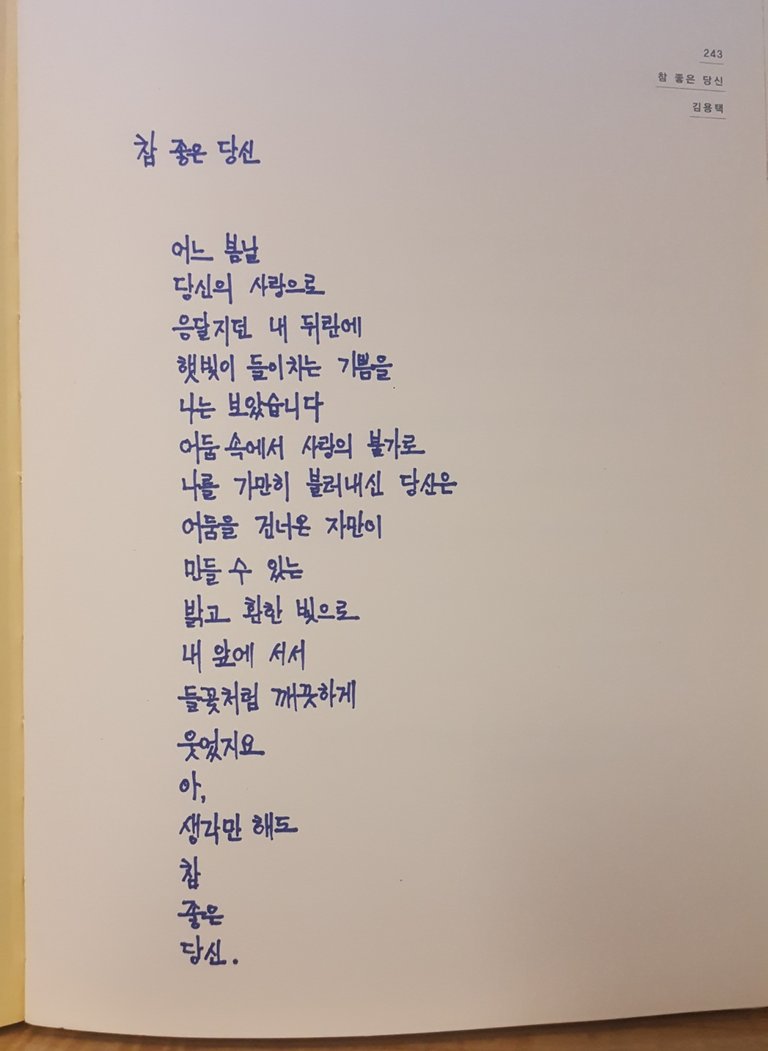 243
참 좋은 당신
김용택
참 좋은 당신
어느 봄날
당신의 사랑으로
응달지던 내 뒤란에
햇빛이 들이치는 기쁨을
나는 보았습니다
어둠 속에서 사랑의 불가로
나를 가만히 불러내신 당신은
어둠을 건너온 자만이
만들 수 있는
밝고 환한 빛으로
내 앞에 서서
들꽃처럼 깨끗하게
웃었지요
아,
생각만 해도
참
좋은
당신.